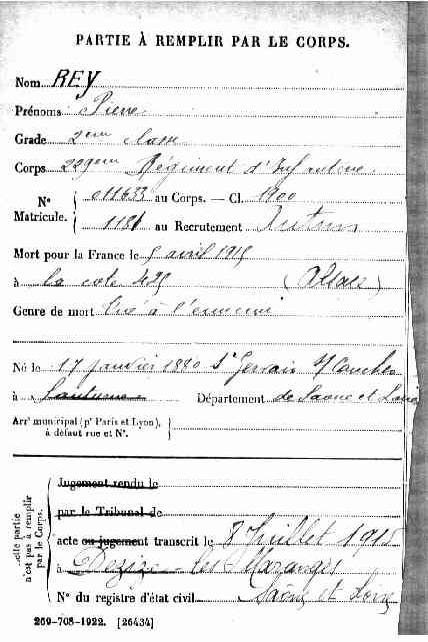 PARTIE À REMPLIR PAR LE CORPS.
Nom REY
Prénoms Pierre
Grade 2eme classe
Corps 229eme Régiment d'Infanterie
N° Matricule. { 011633 au Corps. — Cl. 1900
1181 au Recrutement Autun
Mort pour la France le 5 avril 1915
à la cote 425 (Alsace)
Genre de mort tué à l'ennemi
Né le 17 janvier 1880 St Gervais s/ Couches
à Département de Saone et Loire
Arrt municipal (pr Paris et Lyon), à défaut rue et N°.
cette partie n'est pas à remplir par le Corps.
Jugement rendu le
par le Tribunal de
acte ou jugement transcrit le 8 Juillet 1915
à Dezize les Maranges
Saône et Loire
N° du registre d'état civil
269-708-1922. [26434]